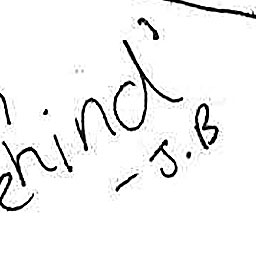 ehind'
- J.B